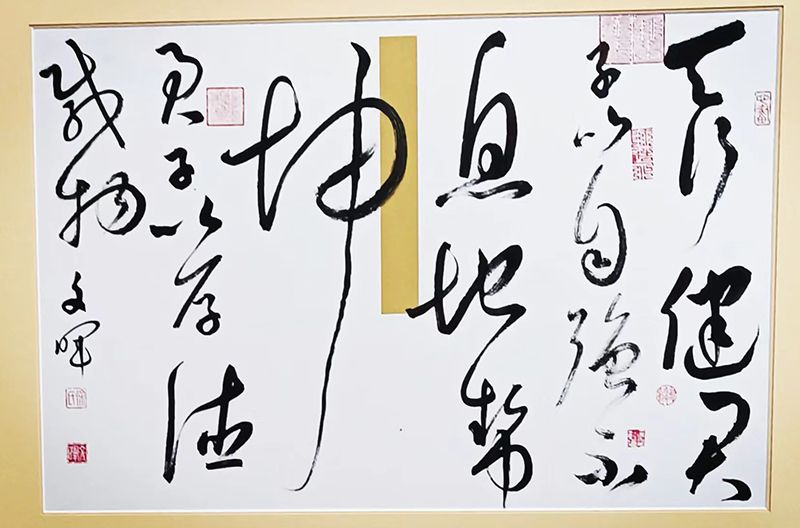 天行健君
子以自強不
息地勢
坤
君子以厚德
載物 文暉